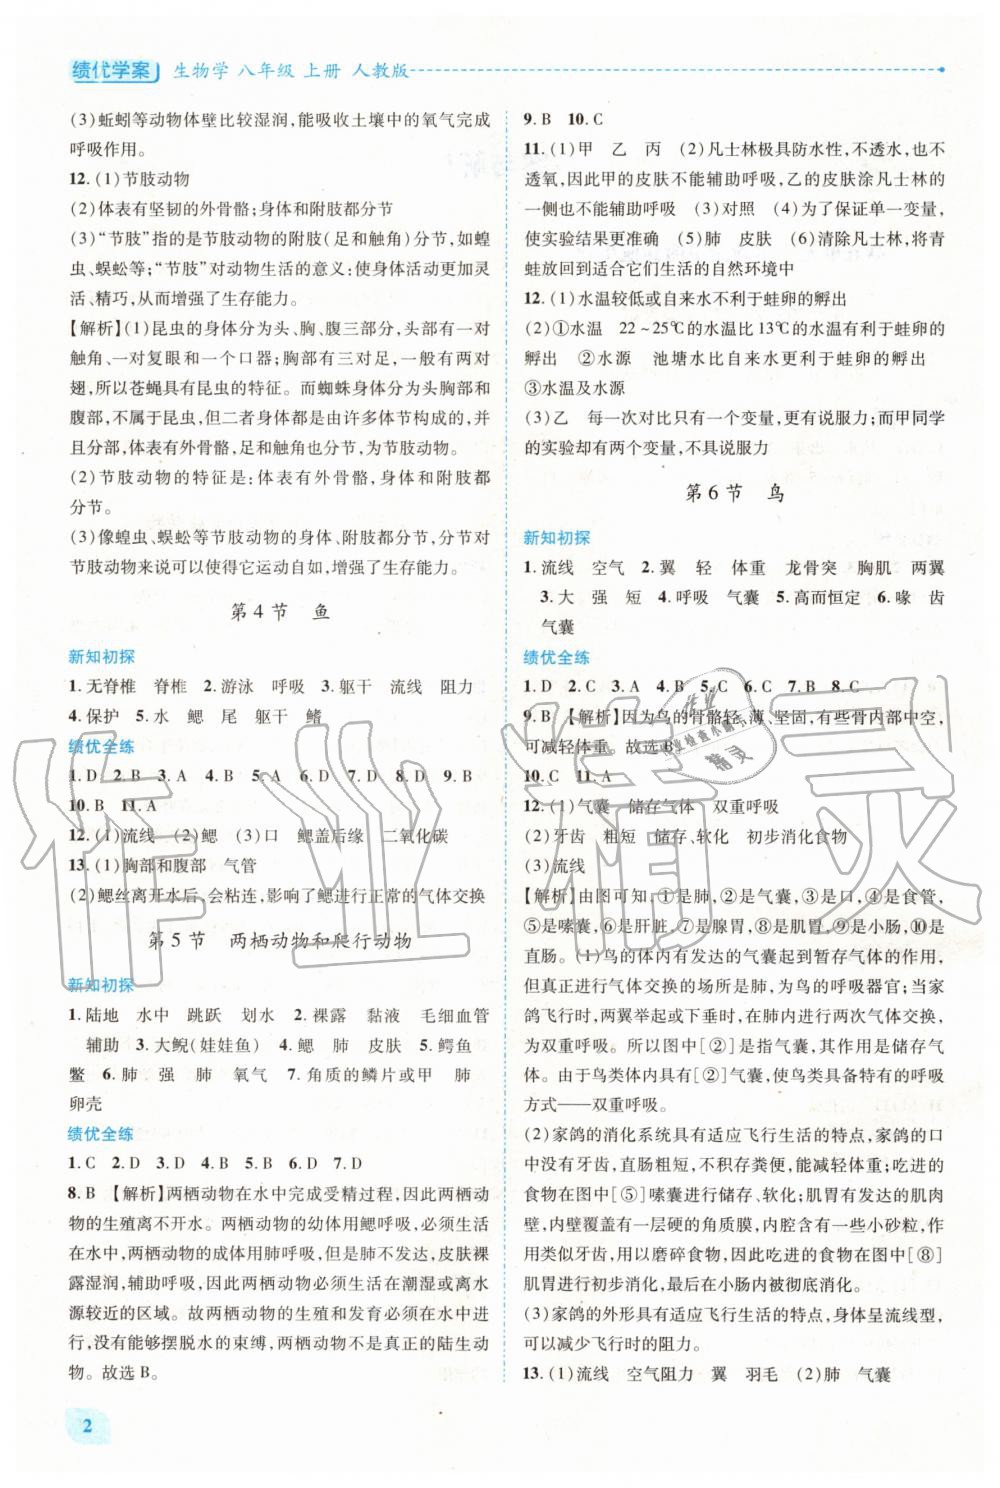 绩优学案 生物学 八年级 上册 人教版
(3)蚯蚓等动物体壁比较湿润,能吸收土壤中的氧气完成
呼吸作用。
12. (1)节肢动物
(2)体表有坚韧的外骨骼;身体和附肢都分节
(3)“节肢”指的是节肢动物的附肢(足和触角)分节,如蝗
虫、蜈蚣等;“节肢”对动物生活的意义:使身体活动更加灵
活、精巧,从而增强了生存能力。
【解析】(1)昆虫的身体分为头、胸、腹三部分,头部有一对
触角、一对复眼和一个口器;胸部有三对足,一般有两对
翅,所以苍蝇具有昆虫的特征。而蜘蛛身体分为头胸部和
腹部,不属于昆虫,但二者身体都是由许多体节构成的,并
且分部,体表有外骨骼,足和触角也分节,为节肢动物。
(2)节肢动物的特征是:体表有外骨骼,身体和附肢都
分节。
(3)像蝗虫、蜈蚣等节肢动物的身体、足和触角都分节,对
节肢动物来说可以使得它运动自如,增强了生存能力。
第4节 鱼
新知初探
1. 无脊椎 脊椎 2. 游泳 呼吸 3. 躯干 流线 阻力
4. 保护 5. 水 鳃 尾 躯干 鳍
绩优全练
1. D 2. B 3. A 4. B 5. B 6. D 7. D 8. D 9. B
10. B 11. A
12. (1)流线 (2)鳃 (3)口 鳃盖后缘 二氧化碳
13. (1)胸部和腹部 气管
(2)鳃丝离开水后,会粘连,影响了鳃进行正常的气体交换
第5节 两栖动物和爬行动物
新知初探
1. 陆地 水中 跳跃 划水 2. 裸露 黏液 毛细血管
辅助 3. 大鲵(娃娃鱼) 4. 鳃 肺 皮肤 5. 鳄鱼
鳖 6. 肺 强 肺 氧气 7. 角质的鳞片或甲 肺
卵壳
绩优全练
1. C 2. D 3. D 4. C 5. B 6. D 7. D
8. B 【解析】两栖动物在水中完成受精过程,因此两栖动
物的生殖离不开水。两栖动物的幼体用鳃呼吸,必须生活
在水中,两栖动物的成体用肺呼吸,但肺不发达,皮肤裸
露湿润,辅助呼吸,因此两栖动物必须生活在潮湿或离水
源较近的区域。故两栖动物的生殖和发育必须在水中进
行,没有能够摆脱水的束缚,两栖动物不是真正的陆生动
物。故选 B。
2
9. B 10. C
11. (1)甲 乙 丙 (2)凡士林极具防水性,不透水,也不
透氧,因此甲的皮肤不能辅助呼吸,乙的皮肤涂凡士林的
一侧也不能辅助呼吸 (3)对照 (4)为了保证单一变量,
使实验结果更准确 (5)肺 皮肤 (6)清除凡士林,将青
蛙放回到适合它们生活的自然环境中
12. (1)水温较低或自来水不利于蛙卵的孵出
(2)①水温 22~25℃的水温比13℃的水温更利于蛙卵的
孵出 ②水源 池塘水比自来水更利于蛙卵的孵出
③水温及水源
(3)乙 每一次对比只有一个变量,更有说服力;而甲同学
的实验却有两个变量,不具说服力
第6节 鸟
新知初探
1. 流线 空气 2. 翼 轻 体重 龙骨突 胸肌 两翼
3. 大 强 短 4. 呼吸 气囊 5. 高而恒定 6. 喙 齿
气囊
绩优全练
1. D 2. C 3. A 4. B 5. C 6. C 7. B 8. C
9. B 【解析】因为鸟的骨骼轻、薄、坚固,有些骨内部中空,
可减轻体重。故选 B。
10. C 11. A
12. (1)气囊 储存气体 双重呼吸
(2)牙齿 粗短 储存、软化 初步消化食物
(3)流线
【解析】由图可知,①是肺,②是气囊,③是口,④是食管,
⑤是嗉囊,⑥是肝脏,⑦是腺胃,⑧是肌胃,⑨是小肠,⑩是
直肠。(1)鸟的体内有发达的气囊起到暂存气体的作用,
但真正进行气体交换的场所是肺,为鸟的呼吸器官;当家
鸽飞行时,两翼举起或下垂时,在肺内进行两次气体交换,
为双重呼吸。所以图中[②]是指气囊,其作用是储存气
体。由于鸟类体内有[②]气囊,使鸟类具备特有的呼吸
方式——双重呼吸。
(2)家鸽的消化系统具有适应飞行生活的特点,家鸽的口
中没有牙齿,直肠粗短,不积存粪便,能减轻体重;吃进的
食物在图中[⑤]嗉囊储存、软化;肌胃有发达的肌肉
壁,内壁覆盖有一层硬的角质膜,内腔含有一些小砂粒,作
用类似牙齿,用以磨碎食物,因此,吃进的食物在图中[⑧]
肌胃进行初步消化,最后在小肠内被彻底消化。
(3)家鸽的外形具有适应飞行生活的特点,身体呈流线型,
可以减少飞行时的阻力。
13. (1)流线 空气阻力 翼 羽毛 (2)肺 气囊
作业精灵